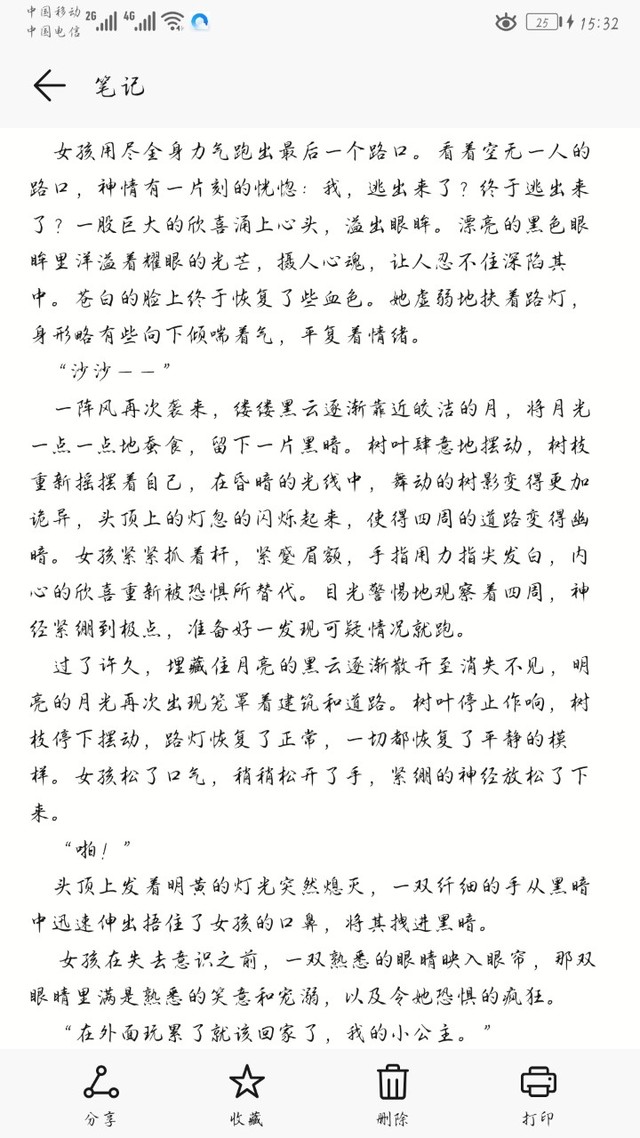 中国移动 2G 4G 25 15:32
中国电信
笔记
女孩用尽全身力气跑出最后一个路口。看着空无一人的
路口，神情有一片刻的恍惚：我，逃出来了？终于逃出来
了？一股巨大的欣喜涌上心头，溢出眼眸。漂亮的黑色眼
眸里洋溢着耀眼的光芒，摄人心魂，让人忍不住深陷其
中。苍白的脸上终于恢复了些血色。她虚弱地扶着路灯，
身形略有些向下倾喘着气，平复着情绪。
“沙沙——”
一阵风再次袭来，缕缕黑云逐渐靠近皎洁的月，将月光
一点一点地蚕食，留下一片黑暗。树叶肆意地摆动，树枝
重新摇摆着自己，在昏暗的光线中，舞动的树影变得更加
诡异，头顶上的灯忽的闪烁起来，使得四周的道路变得幽
暗。女孩紧紧抓着杆，紧蹙眉额，手指用力指尖发白，内
心的欣喜重新被恐惧所替代。目光警惕地观察着四周，神
经紧绷到极点，准备好一发现可疑情况就跑。
过了许久，埋藏住月亮的黑云逐渐散开至消失不见，明
亮的月光再次出现笼罩着建筑和道路。树叶停止作响，树
枝停下摆动，路灯恢复了正常，一切都恢复了平静的模
样。女孩松了口气，稍稍松开了手，紧绷的神经放松了下
来。
“啪！”
头顶上发着明黄的灯光突然熄灭，一双纤细的手从黑暗
中迅速伸出捂住了女孩的口鼻，将其拽进黑暗。
女孩在失去意识之前，一双熟悉的眼睛映入眼帘，那双
眼睛里满是熟悉的笑意和宠溺，以及令她恐惧的疯狂。
“在外面玩累了就该回家了，我的小公主。”
分享 收藏 删除 打印